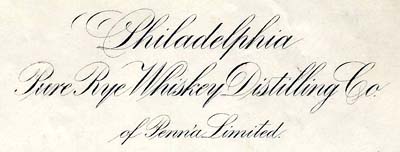 Philadelphia
Pure Rye Whiskey Distilling Co.
of Penn'a Limited.